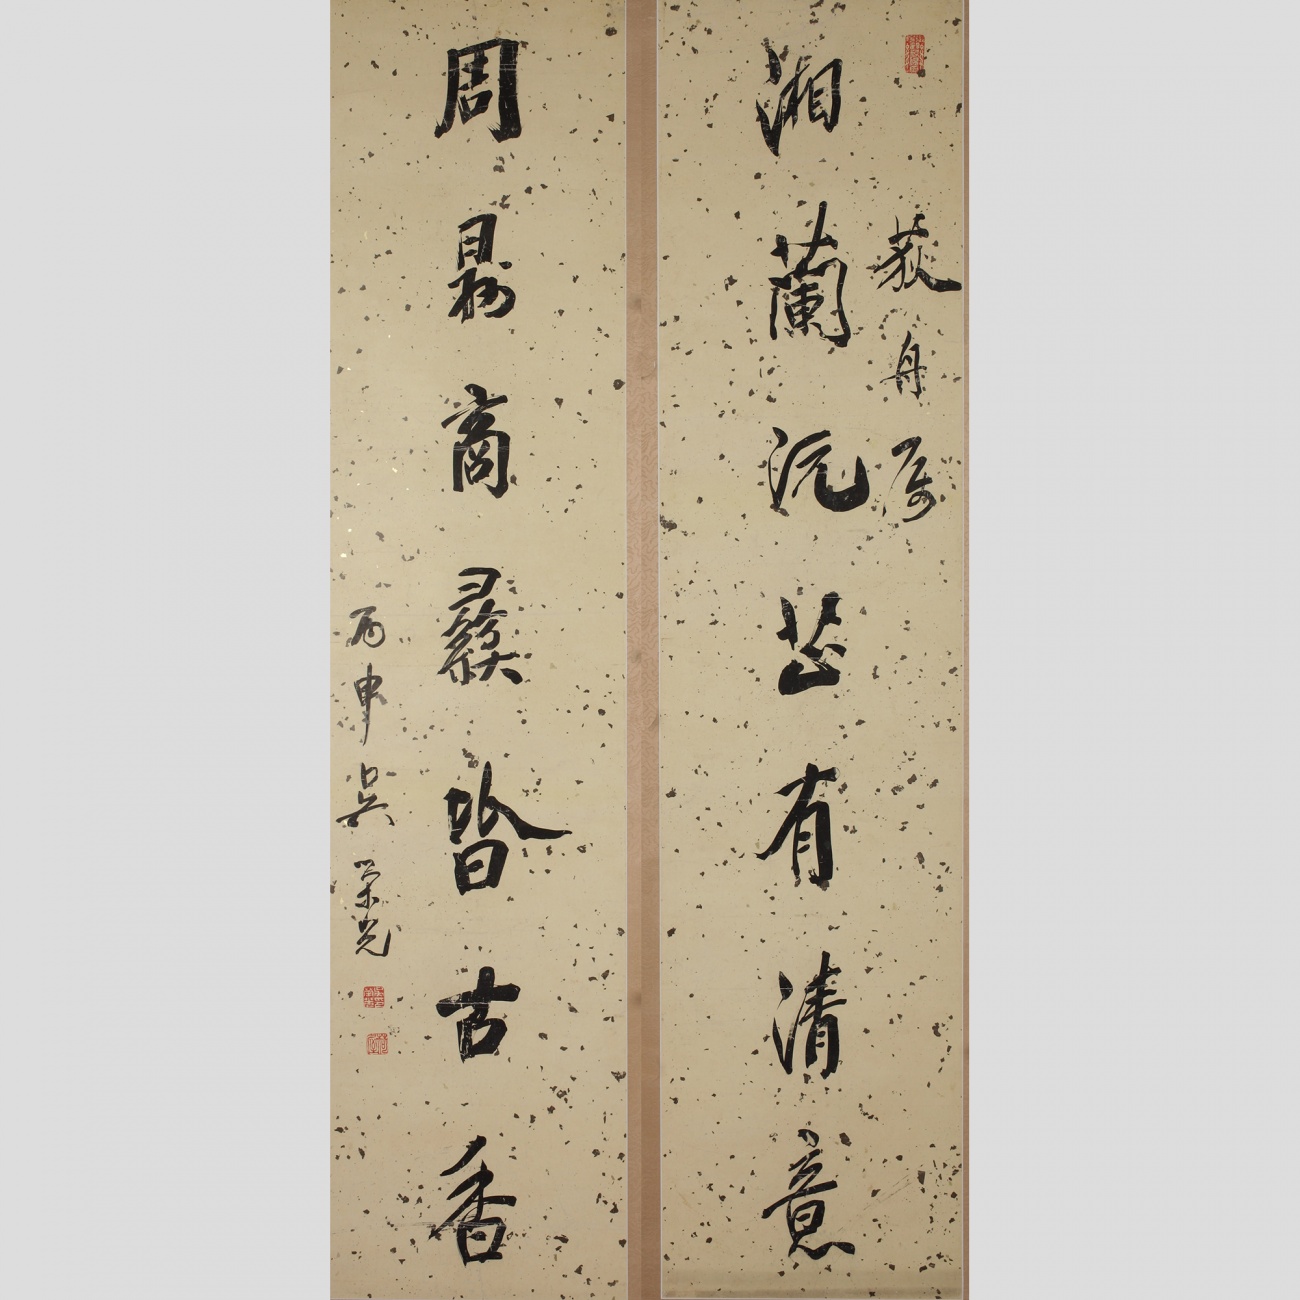 荻舟属
湘蘭沅芷有清意
周鼎商彝皆古香
丙申吳榮光